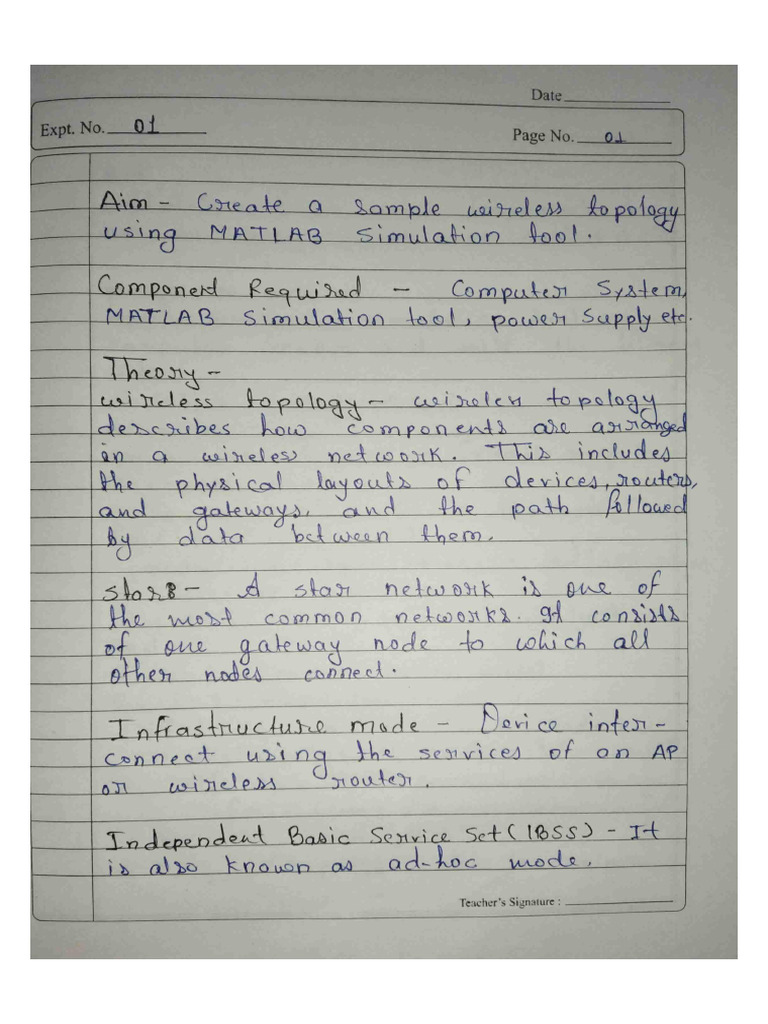 Date
Expt. No. 01
Page No. 01
Aim - Create a sample wireless topology
using MATLAB Simulation tool.
Component Required - Computer System,
MATLAB Simulation tool, power Supply etc.
Theory -
wireless topology - wireless topology
describes how components are arranged
in a wireless network. This includes
the physical layouts of devices, routers,
and gateways, and the path followed
by data between them.
Star - A star network is one of
the most common networks. It consists
of one gateway node to which all
other nodes connect.
Infrastructure mode - Device inter-
connect using the services of an AP
or wireless router.
Independent Basic Service Set (IBSS) - It
is also known as ad-hoc mode.
Teacher's Signature :